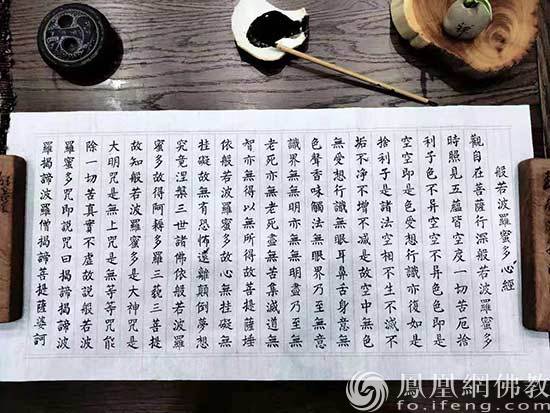 般若波羅蜜多心經
觀自在菩薩行深般若波羅蜜多
時照見五蘊皆空度一切苦厄捨
利子色不异空空不异色色即是
空空即是色受想行識亦復如是
捨利子是諸法空相不生不滅不
垢不淨不增不減是故空中無色
無受想行識無眼耳鼻舌身意無
色聲香味觸法無眼界乃至無意
識界無無明亦無無明盡乃至無
老死亦無老死盡無苦集滅道無
智亦無得以無所得故菩提薩埵
依般若波羅蜜多故心無挂礙無
挂礙故無有恐怖遠離顛倒夢想
究竟涅槃三世諸佛依般若波羅
蜜多故得阿耨多羅三藐三菩提
故知般若波羅蜜多是大神咒是
大明咒是無上咒是無等等咒能
除一切苦真實不虛故說般若波
羅蜜多咒即說咒曰揭諦揭諦波
羅揭諦波羅僧揭諦菩提薩婆訶
鳳凰網佛教
fo.ifeng.com